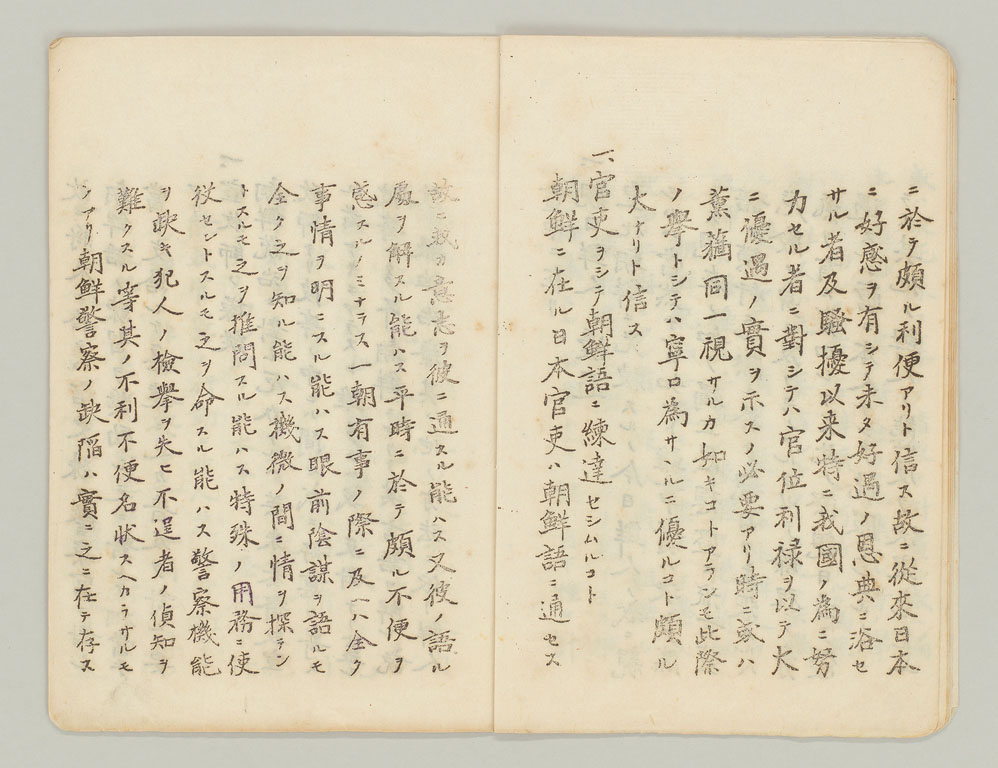 ニ於テ頗ル利便アリト信ス故ニ從來日本
ニ好感ヲ有シテ未タ好遇ノ恩典ニ浴セ
サル者及騷擾以来特ニ我國ノ為ニ努
力セル者ニ對シテハ官位利禄ヲ以テ大
ニ優遇ノ實ヲ示スノ必要アリ時ニ或ハ
薰蕕同一視サルカ如キコトアランモ此際
ノ擧トシテハ寧ロ為サヽルニ優ルコト頗ル
大ナリト信ス
一、官吏ヲシテ朝鮮語ニ練達セシムルコト
朝鮮ニ在ル日本官吏ハ朝鮮語ニ通セス
故ニ我カ意志ヲ彼ニ通スル能ハス又彼ノ語ル
處ヲ解スル能ハス平時ニ於テ頗ル不便ヲ
感スルノミナラス一朝有事ノ際ニ及ヘハ全ク
事情ヲ明ニスル能ハス眼前陰謀ヲ語ルモ
全ク之ヲ知ル能ハス機微ノ間ニ情ヲ探テン
トスルモ之ヲ推問スル能ハス特殊ノ用務ニ使
役セントスルモ之ヲ命スル能ハス警察機能
ヲ缺キ犯人ノ檢擧ヲ失ヒ不逞者ノ偵知ヲ
難クスル等其ノ不利不便名状スヘカラサルモ
ノアリ朝鮮警察ノ缺陥ハ實ニ之ニ在テ存ス